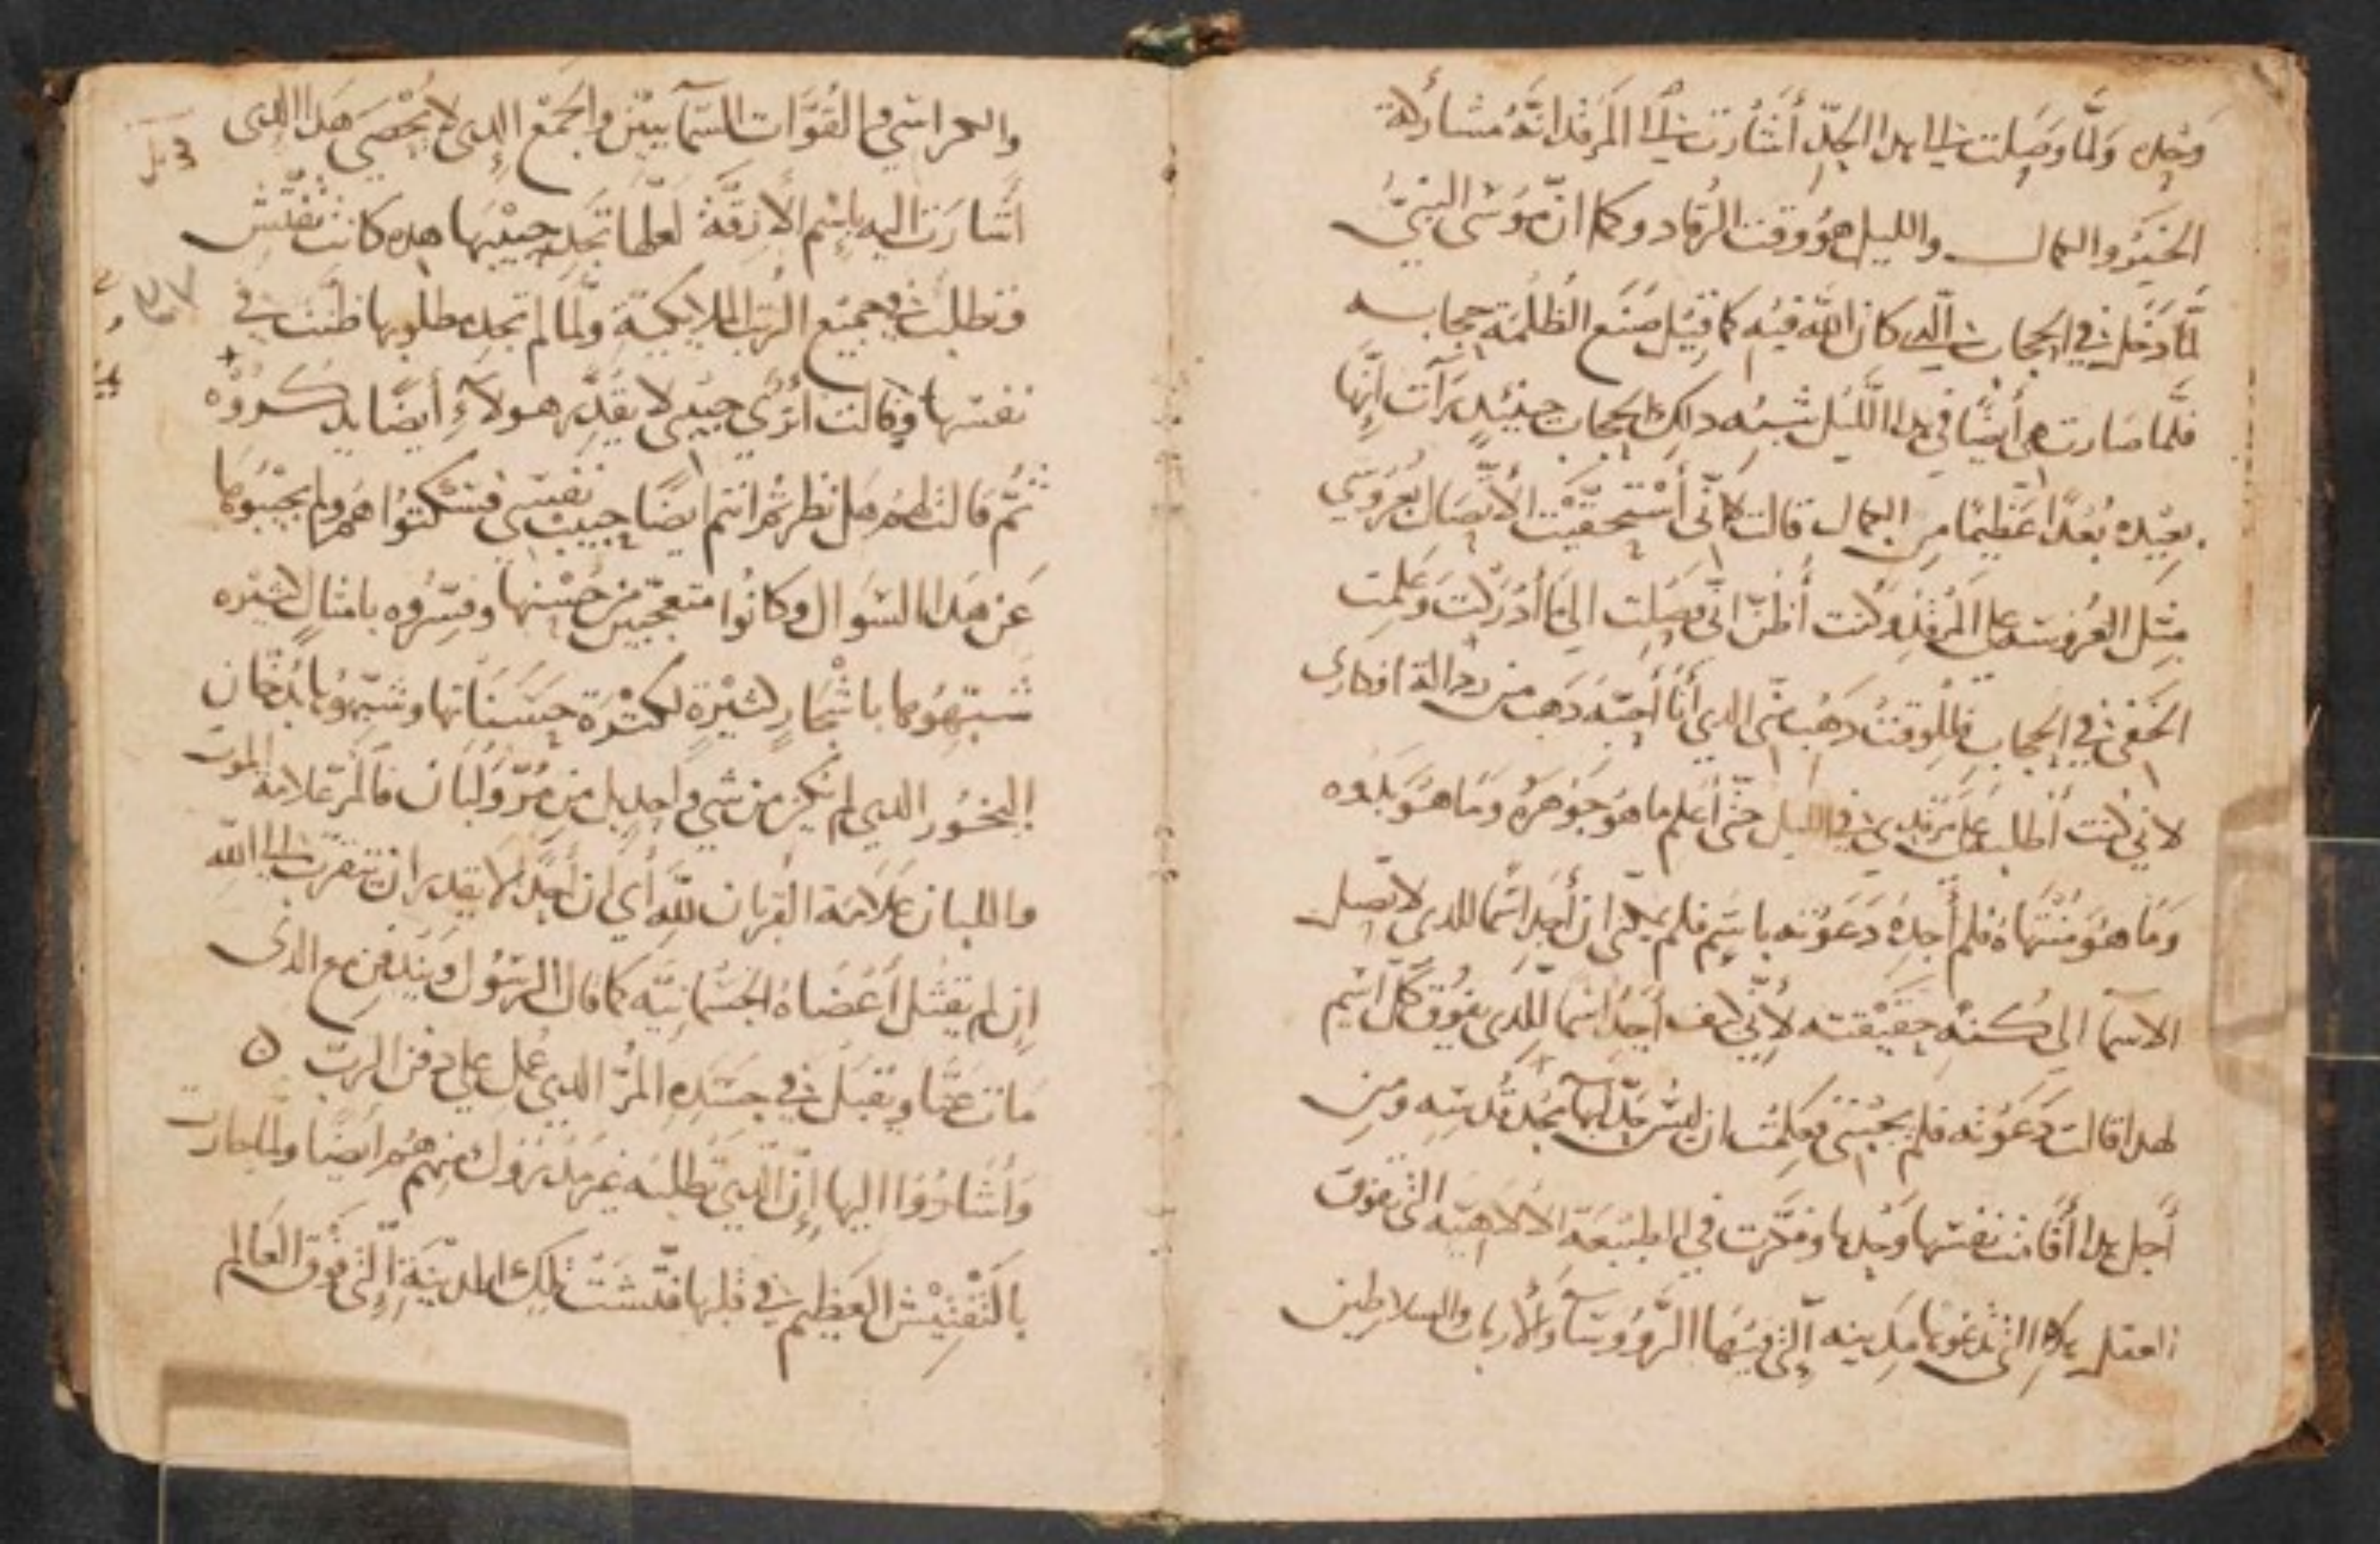 وحده ولما وصلت الى هدا الحد أشارت الى المرقد انه مشاركة
الخير والكمال والليل هو وقت الرقاد وكما ان موسى النبي
لما دخل في الحجاب الدي كان الله فيه كما قيل صنع الظلمة حجابه
فلما صارت هي أيضا في هدا الليل شبه دلك الحجاب حينيد رآت انها
بعيده بعدا عظيما من الكمال قالت كاني أستحقيت الاتصال بعروسي
مثل العروسه على المرقد وكنت أظن اني وصلت الى ما أدركت وعلمت
الخفى في الحجاب فللوقت دهب عني الدي أنا أحبه دهب من افكاري
لاني كنت أطلبه على مرقدي في الليل حتى أعلم ما هو جوهره وما هو بدوه
وما هو منتهاه فلم أجده دعوته باسم فلم يمكني ان أجد اسما للدي لا تصل
الاسما الى كنه حقيقته لأني كيف أجد اسما للدي يفوق كل اسم
لهدا قالت دعوته فلم يجبني فعلمت ان ليس حد لبها مجد قدسه ومن
أجل هدا أقامت نفسها وحدها وفكرت في الطبيعة الالاهية التى تفوق
العقل هده التى تدعوها مدينه التى فيها الروسا والأرباب والسلاطين
والكراسي والقوات السمآييين والجمع الدى لا يحصى هدا الدى
أشارت اليه باسم الازقة لعلها تجد حبيبها هده كانت تفتش
وتطلب في جميع الرتب الملايكية ولما لم تجد مطلوبها ظنت في
نفسها وقالت أترى حبيبى لا يقدر هولآء أيضا يدركوه
ثم قالت لهم هل نظرتم انتم ايضا حبيب نفسي فسكتوا هم ولم يجيبوها
عن هدا السوال وكانوا متعجبين من حسنها وفسروه بامثال كثيره
شبهوها باشجار كثيرة لكثرة حسناتها وشبهوها بدخان
البخور الدي لم يكن من شي واحد بل من مر ولبان فالمر علامة الموت
واللبان علامة القربان لله أي ان أحدا لا يقدر ان يتقرب الى الله
ان لم يقتل أعضاه الجسمانية كما قال الرسول ويندفن مع الدى
مات عنا ويقبل في جسده المر الدي عمل على دفن الرب ن
وأشاروا اليها إن الدي تطلبه غير مدروك منهم هم ايضا ولما جازت
بالتفتيش العظيم في قلبها فتشت تلك المدينة التى فوق العالم